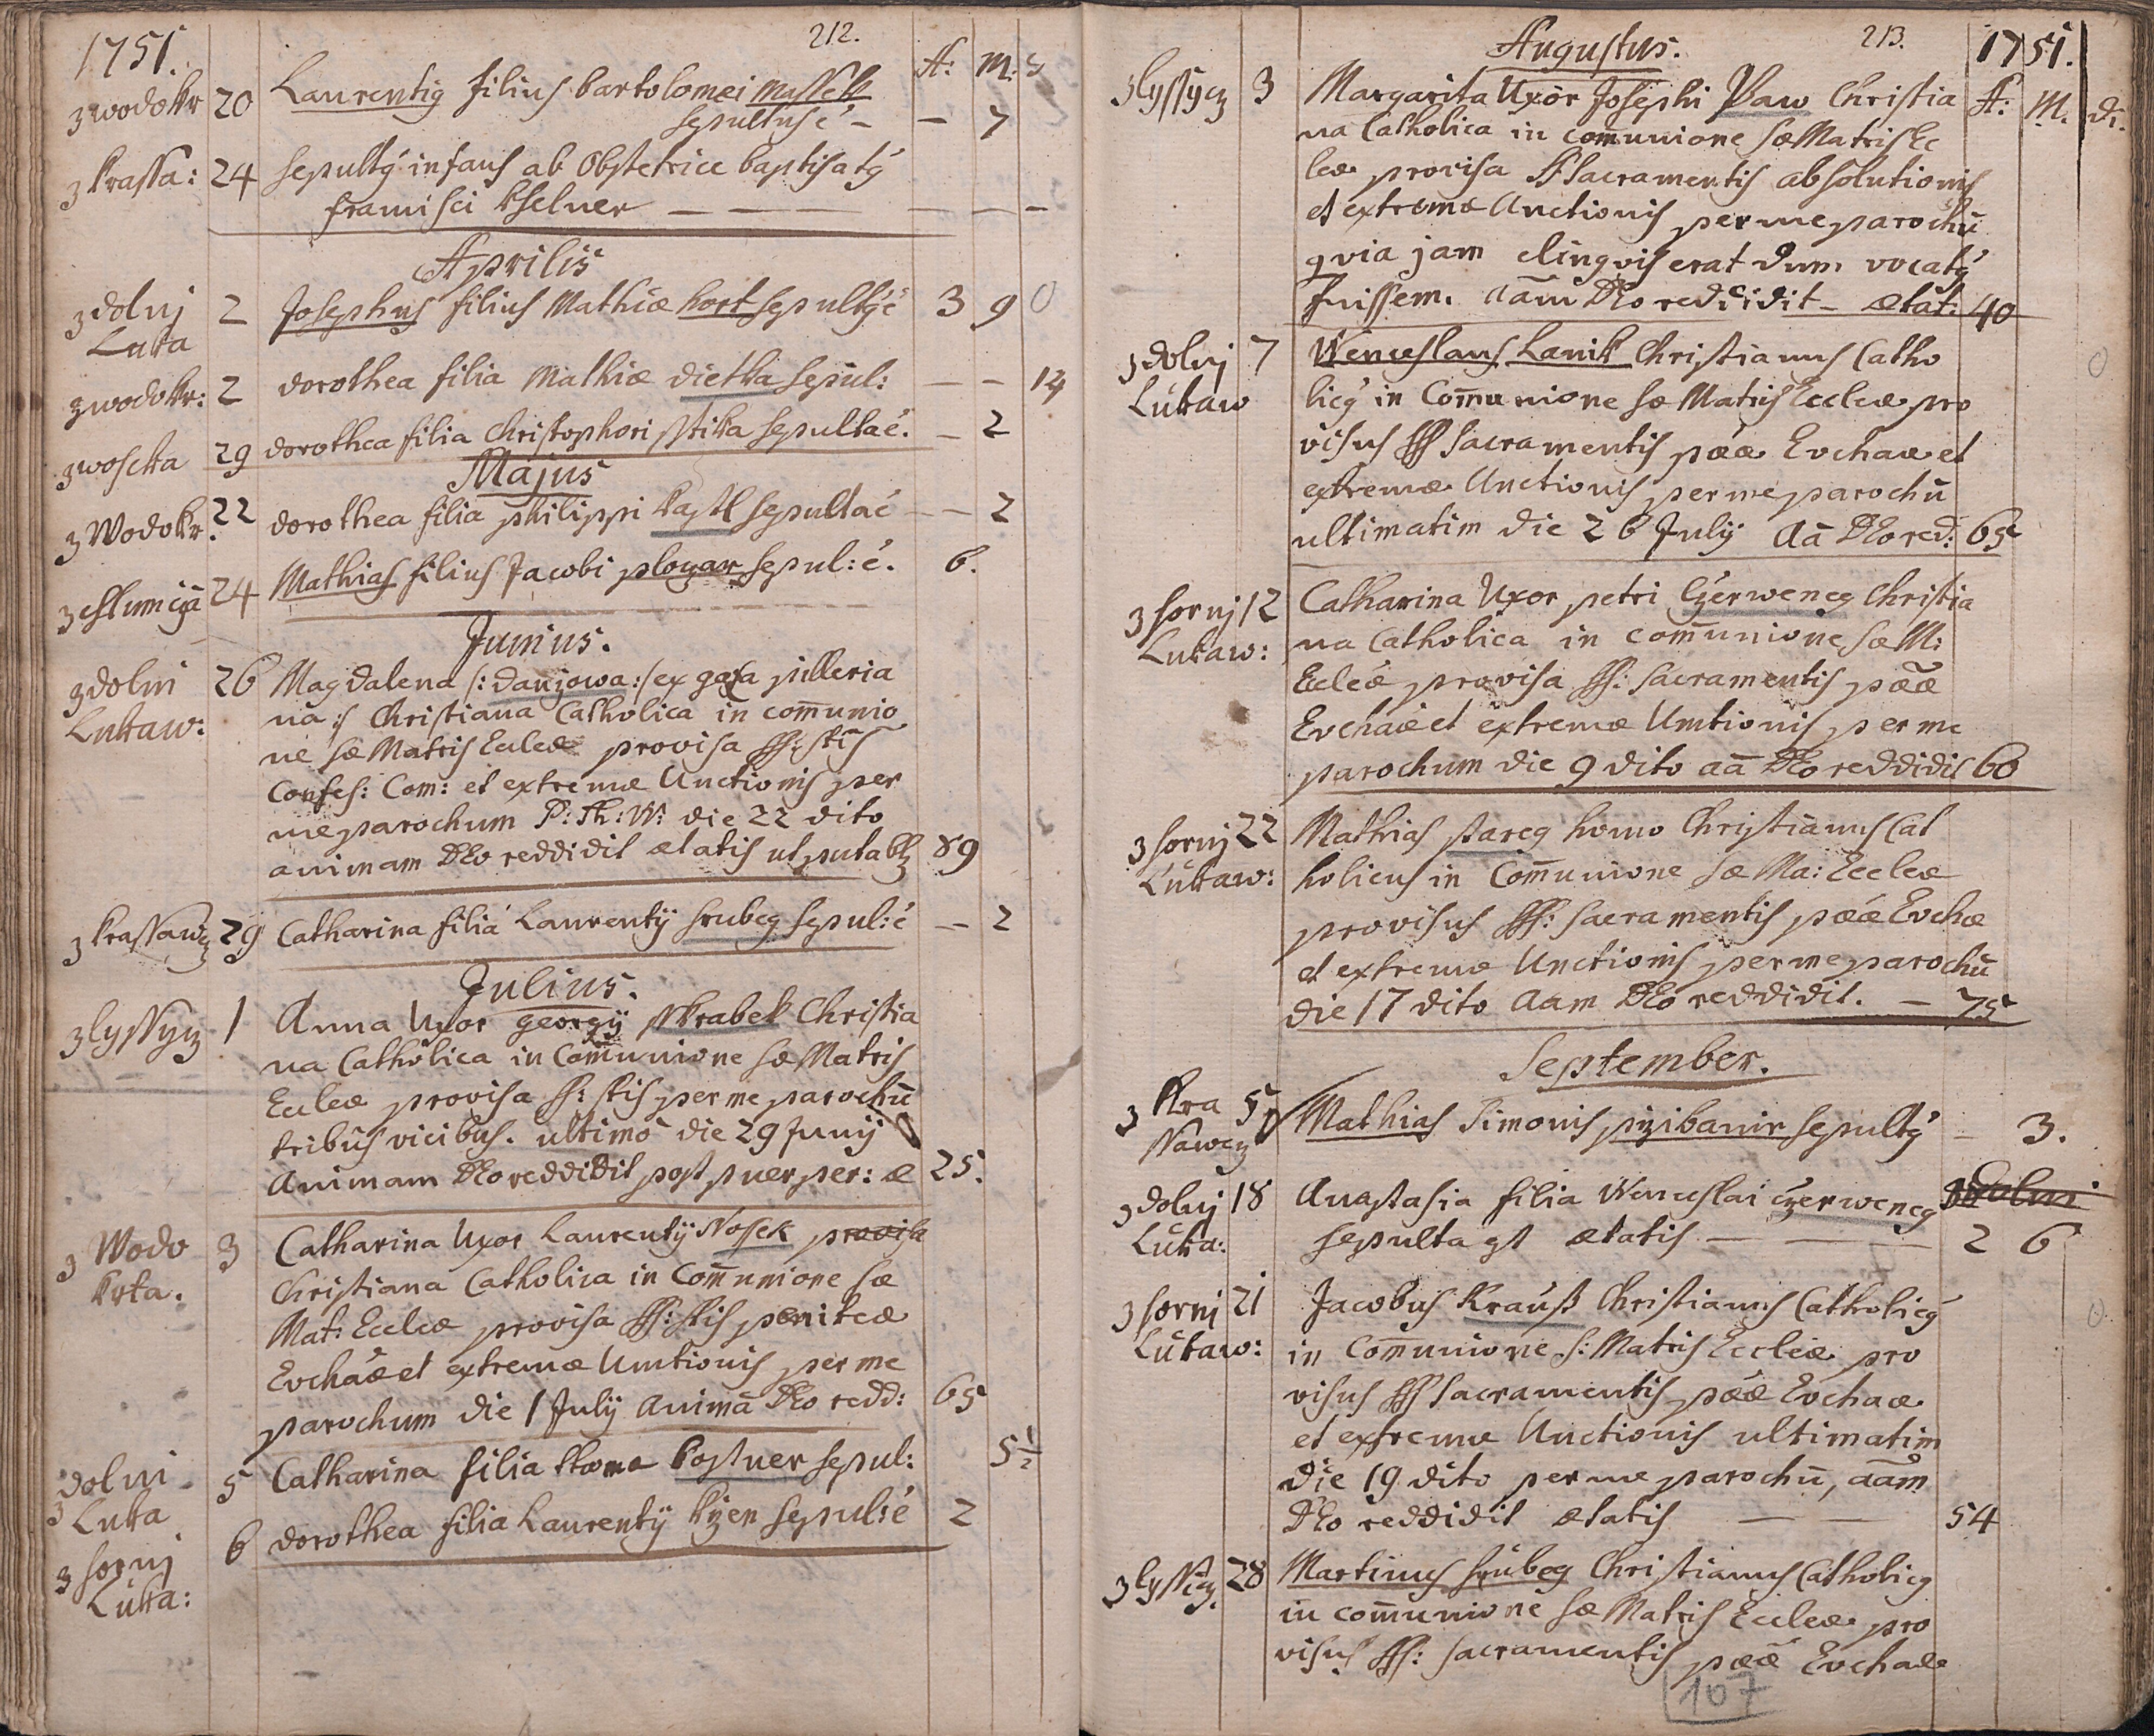 1751.
212.
A: M: D
z wodokr 20 Laurentiꝯ filius bartolomei Massek
sepultus ē - - 7
z krassa: 24 sepultꝯ infans ab Obstetrice baptisatꝯ
francisci kselner - - -
Aprilis
z dolnj Luka 2 Josephus filius Mathiæ hort sepultꝯ ē 3 9 0
z wodokr: 2 dorothea filia Mathiæ dietka sepul: - - 14
z woseka 29 dorothea filia Christophori sstika sepulta ē. - 2
Majus
z Wodokr. 22 dorothea filia philippi kastl sepulta ē - - 2
z chlumcžā 24 Mathias filius Jacobi plozar sepul: ē. 6.
Junius.
z dolni Lukaw: 26 Magdalena /: danzowa :/ ex gaza pilleria
na :/ Christiana Catholica in com̄unio
ne sæ Matris Eccleæ provisa SS: stis
Confes: Com: et extremæ Unctionis per
me parochum P: Th: W: die 22 dito
animam DEo reddidit ætatis ut putabꝫ 89
z krassawcz 29 Catharina filia Laurentij hrubeg sepul: ē - 2
Julius.
z lyssycz 1 Anna Uxor georgij sskrabek Christia
na Catholica in Com̄unione sæ Matris
Eccleæ provisa SS: stis per me parochū
tribus vicibus. ultimo die 29 Junij
Animam DEo reddidit post puerper: æ 25.
z Wodo krta. 3 Catharina Uxor Laurentij Nossek provisa
Christiana Catholica in Com̄unione sæ
Mat: Eccleæ provisa SS: stis peniteæ
Evchaæ et extremæ Unctionis per me
parochum die 1 July animā DEo redd: 65
z dolni Luka 5 Catharina filia thomæ kostner sepul: 5 ½
z hornj Luka: 6 dorothea filia Laurentij kyen sepul: ē 2
213.
1751.
Augustus.
A: M. di.
z lyssycz 3 Margarita Uxor Josephi Paw Christia
na Catholica in com̄unione sæ Matris Ec
leæ provisa SSacramentis absolutionis
et extremæ Unctionis per me parochū
qvia jam elingvis erat dum vocatꝯ
fuissem. aām DEo reddidit - ætat: 40
z dolnj Lukaw 7 Wenceslaus Hanik Christianus Catho
licꝯ in Com̄unione sæ Matris Eccleæ pro
visus SS Sacramentis pææ Evchaæ et
extremæ Unctionis per me parochū
ultimatim die 26 July aā DEo red: 65
z hornj Lukaw: 12 Catharina Uxor petri Czerweneg Christia
na Catholica in com̄unione sæ M:
Eccleæ provisa SS: Sacramentis pææ
Evchaæ et extremæ Unctionis per me
parochum die 9 dito aā DEo reddidit 60
z hornj Lukaw: 22 Mathias stareg homo Christianus Cat
holicus in Com̄unione sæ Ma: Eccleæ
provisus SS: Sacramentis pææ Evchæ
et extremæ Unctionis per me parochū
die 17 dito aam DEo reddidit. - 75
September.
z kra ssawcz 5 Mathias Simonis pizibanir sepultꝯ - 3.
z dolnj Luka: 18 Anastasia filia Wenceslai Czerweneg z dolni
sepulta est ætatis - 2 6
z hornj Lukaw: 21 Jacobus Krauß Christianus Catholicꝯ
in Com̄unione S: Matris Eccleæ pro
visus SS Sacramentis pææ Evchaæ
et extremæ Unctionis ultimatim
die 19 dito per me parochū, aām
DEo reddidit ætatis - - 54
z lyssicz. 28 Martinus hrubeg Christianus Catholicꝯ
in com̄unione sæ Matris Eccleæ pro
visus SS: Sacramentis pææ Evchaæ
107